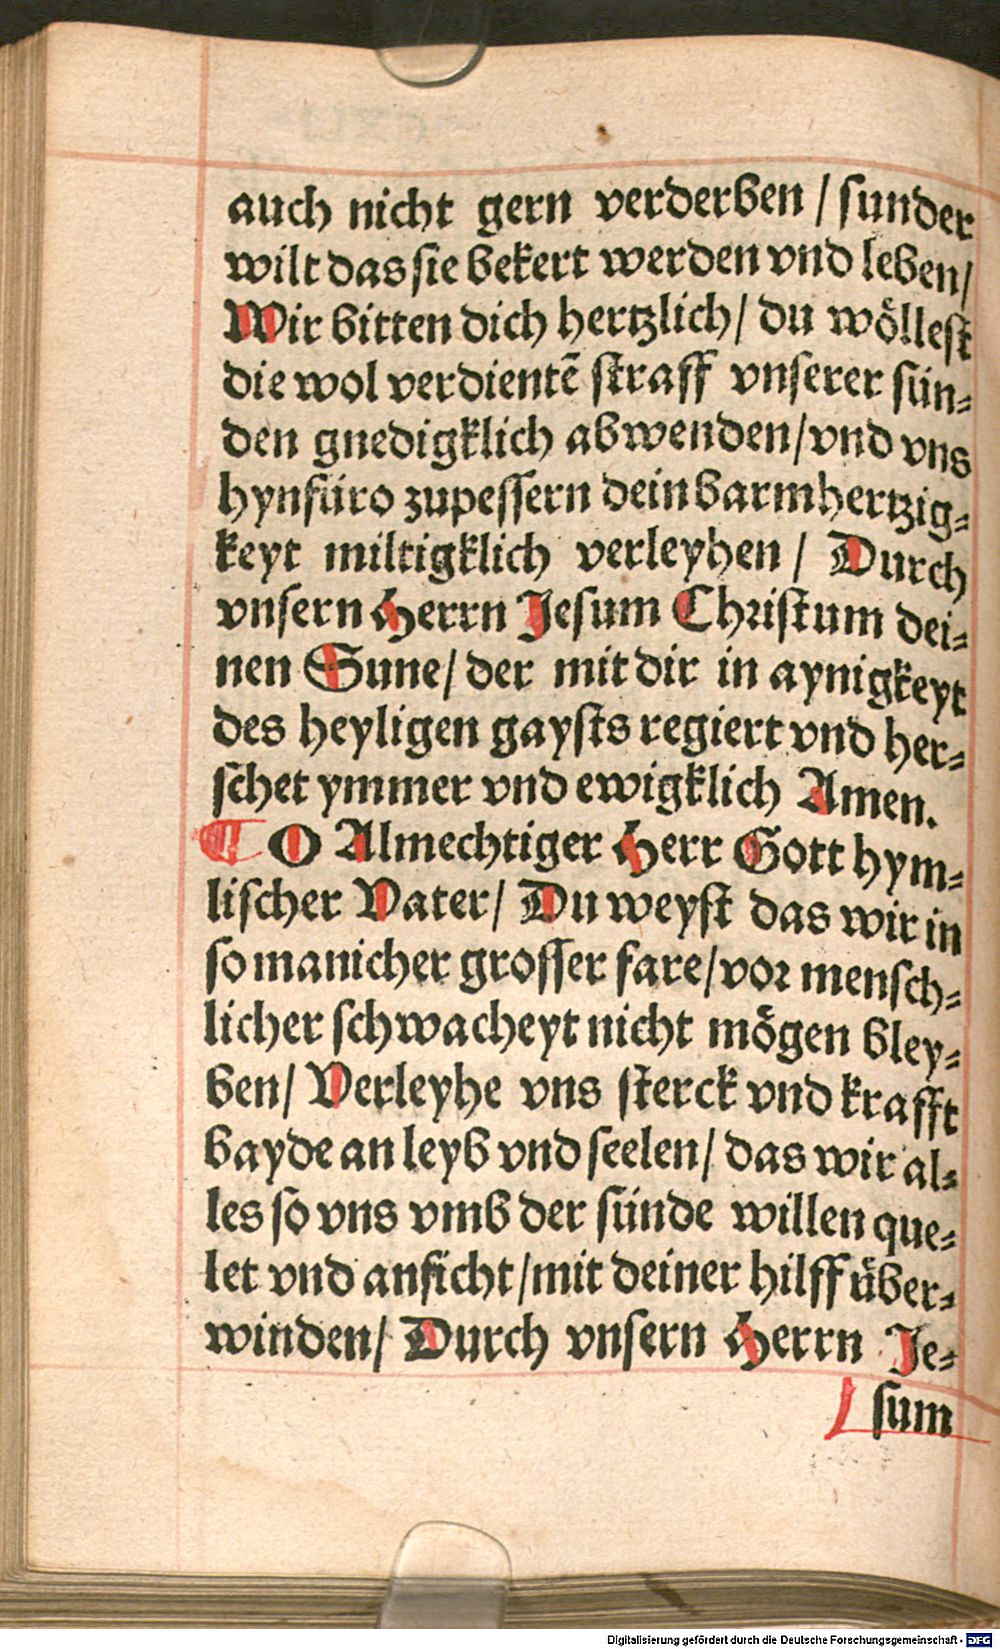 auch nicht gern verderben / sunder
wilt das sie bekert werden vnd leben /
Wir bitten dich hertzlich / du wöllest
die wol verdientē straff vnserer sün⸗
den gnedigklich abwenden / vnd vns
hynfüro zupessern dein barmhertzig⸗
keyt miltigklich verleyhen / Durch
vnsern Herrn Jesum Christum dei⸗
nen Sune / der mit dir in aynigkeyt
des heyligen gaysts regiert vnd her⸗
schet ymmer vnd ewigklich Amen.
¶ O Almechtiger Herr Gott hym⸗
lischer Vater / Du weyst das wir in
so manicher grosser fare / vor mensch⸗
licher schwacheyt nicht mögen bley⸗
ben / Verleyhe vns sterck vnd krafft
bayde an leyb vnd seelen / das wir al⸗
les so vns vmb der sünde willen que⸗
let vnd anficht / mit deiner hilff über⸗
winden / Durch vnsern Herrn Je⸗
sum
Digitalisierung gefördert durch die Deutsche Forschungsgemeinschaft - DFG